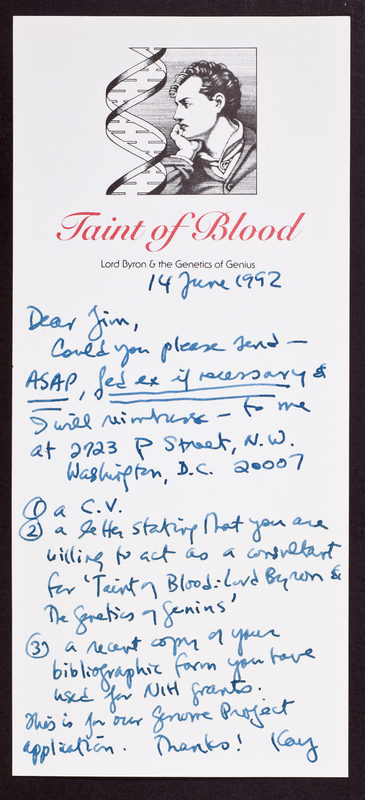 Taint of Blood
Lord Byron & the Genetics of Genius
14 June 1992
Dear Jim,
Could you please send —
ASAP, fed ex if necessary &
I will reimburse — to me
at 2723 P Street, N.W.
Washington, D.C. 20007
① a C.V.
② a letter stating that you are
willing to act as a consultant
for 'Taint of Blood: Lord Byron &
The Genetics of Genius'
③ a recent copy of your
bibliographic form you have
used for NIH grants.
This is for our Genome Project
application. Thanks! Kay